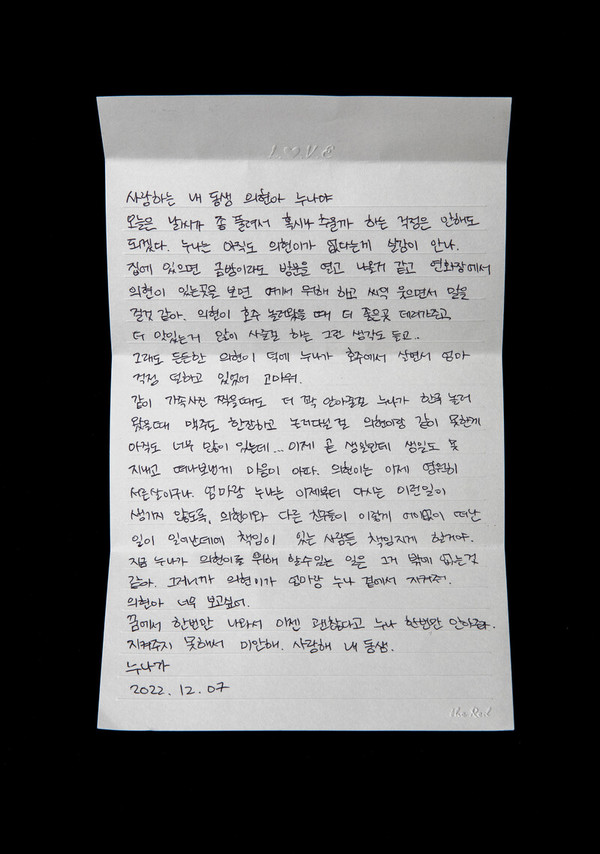 LOVE
사랑하는 내 동생 의현아 누나야
오늘은 날씨가 좀 풀려서 혹시나 추울까 하는 걱정은 안해도
되겠다. 누나는 아직도 의현이가 없다는게 실감이 안나.
집에 있으면 금방이라도 방문을 열고 나올거 같고 연화장에서
의현이 있는곳을 보면 여기서 뭐해 하고 씨익 웃으면서 말을
걸것 같아. 의현이 호주 놀러왔을 때 더 좋은곳 데려가주고
더 맛있는거 많이 사줄걸 하는 그런 생각도 들고..
그래도 든든한 의현이 덕에 누나가 호주에서 살면서 엄마
걱정 덜하고 있었어 고마워.
같이 가족사진 찍을때도 더 꽉 안아줄걸 누나가 한국 놀러
왔을때 맥주도 한잔하고 놀러다닐걸 의현이랑 같이 못한게
아직도 너무 많이 있는데... 이제 곧 생일인데 생일도 못
지내고 떠나보낸게 마음이 아파. 의현이는 이제 영원히
서른살이구나. 엄마랑 누나는 이제부터 다시는 이런일이
생기지 않도록, 의현이와 다른 친구들이 이렇게 어이없이 떠난
일이 일어난데에 책임이 있는 사람들 책임지게 할거야.
지금 누나가 의현이를 위해 할수있는 일은 그거 밖에 없는것
같아. 그러니까 의현이가 엄마랑 누나 곁에서 지켜줘.
의현아 너무 보고싶어.
꿈에서 한번만 나와서 이젠 괜찮다고 누나 한번만 안아줘라.
지켜주지 못해서 미안해. 사랑해 내 동생.
누나가
2022. 12. 07